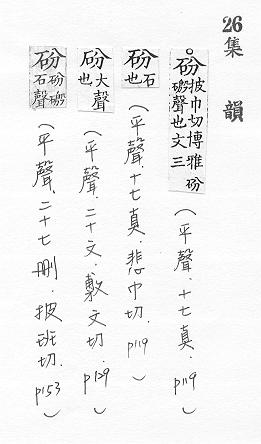 26 集韻
砏 披巾切博雅砏磤聲也文三 (平聲.十七真.p119)
砏 石也 (平聲.十七真.悲巾切.p119)
砏 大聲也 (平聲.二十文.敷文切.p129)
砏 砏磤石聲 (平聲.二十七刪.披班切.p153)